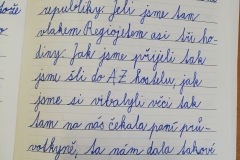 ože
republiky. Jeli jsme tam
vlakem Regiojetem asi tři ho-
diny. Jak jsme přijeli tak
jsme šli do AZ hostelu, jak
jsme si vibalyli věci tak
tam na nás čekala paní prů-
votkyně, ta nám dala takové